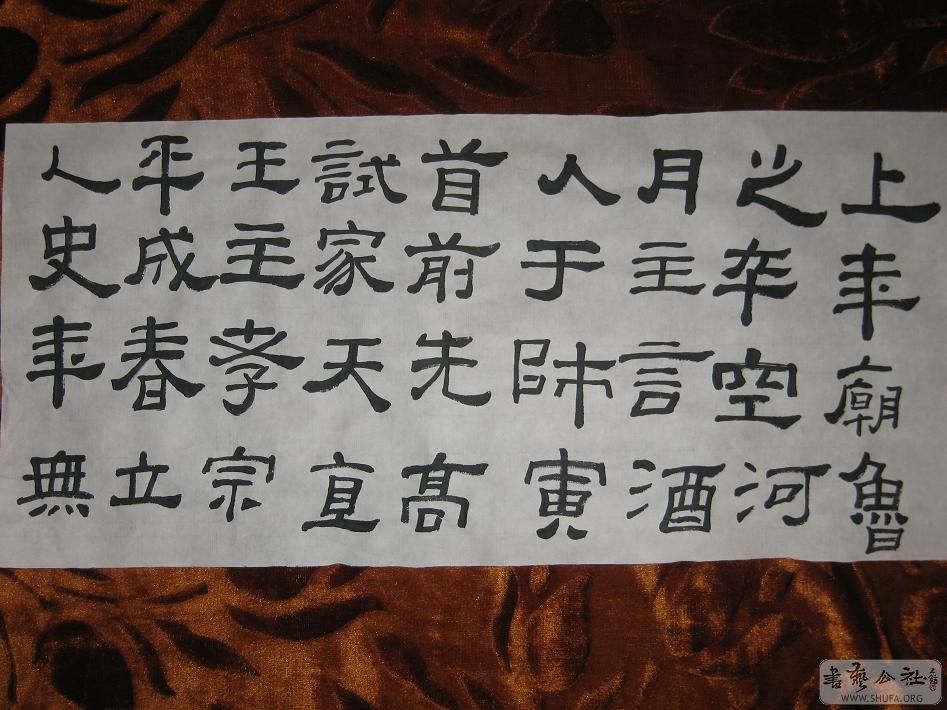 上年廟魯
之卒空河
月主言酒
人于帥寅
首前先高
試家天宣
王主孝宗
平成春立
人史年無
書藝公社
WWW.SHUFA.ORG